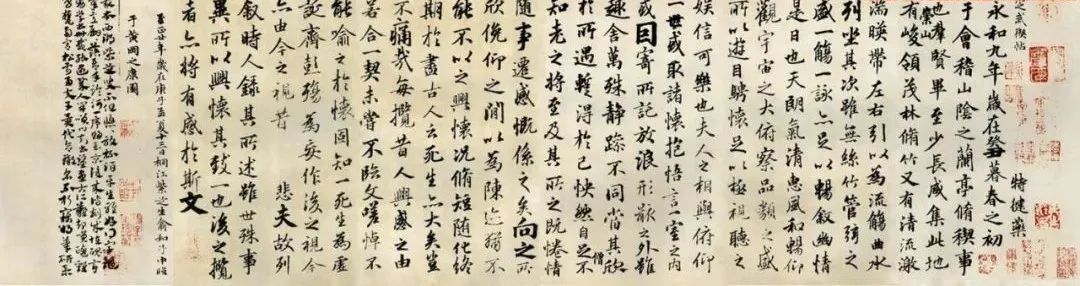 特健藥
永和九年歲在癸暮春之初
于會稽山陰之蘭亭脩稧事
也羣賢畢至少長咸集此地
崇山
有峻領茂林脩竹又有清流激
湍暎帶左右引以為流觴曲水
列坐其次雖無絲竹管弦之
盛一觴一詠亦足以暢叙幽情
是日也天朗氣清惠風和暢仰
觀宇宙之大俯察品類之盛
所以遊目騁懷足以極視聽之
娛信可樂也夫人之相與俯仰
一世或取諸懷抱悟言一室之內
或因寄所託放浪形骸之外雖
趣舍萬殊静躁不同當其欣
於所遇暫得於己快然自足不
知老之將至及其所之既惓情
隨事遷感慨係之矣向之所
欣俛仰之閒以為陳迹猶不
能不以之興懷況脩短随化終
期於盡古人云死生亦大矣豈
不痛哉每攬昔人興感之由
若合一契未嘗不臨文嗟悼不
能喻之於懷固知一死生為虛
誕齊彭殤為妄作後之視今
亦由今之視昔 悲夫故列
叙時人錄其所述雖世殊事
異所以興懷其致一也後之攬
者亦將有感於斯文
年歲在庚子孟夏十三日桐江紫芝生俞和
于黄岡之康園